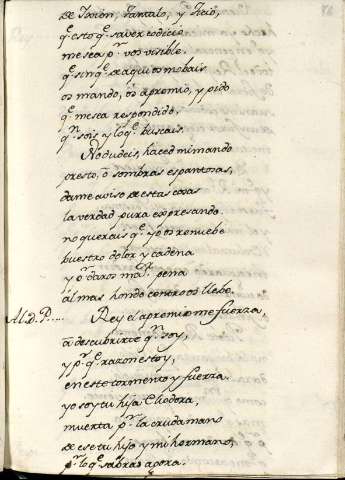 de Ixión, Tantalo, y Ticio,
q.e esto q.e saver codicio
me sea p.r vos visible.
q.e sin q.e de aqui os mobais
os mando, ós apremio, y pido
q.e me sea respondido,
q.n sois y lo q.e buscais.
No dudeis, haced mi mando
presto, ó sombras espantosas,
dame aviso de estas cosas
la verdad pura expresando.
no querais q.e yo os renuebe
buestro dolor y cadena
y p.r daros mas pena
ál mas hondo centro os llebe.
Al. D. P.... Rey el apremio me fuerza,
á descubrirte q.n soy,
y p.r q.e razon estoy,
en este tormento y fuerza.
yo soy tu hija Eliodora,
muerta p.r la cruda mano
de ese tu hijo y mi hermano,
p.r lo q.e sabrás agora.